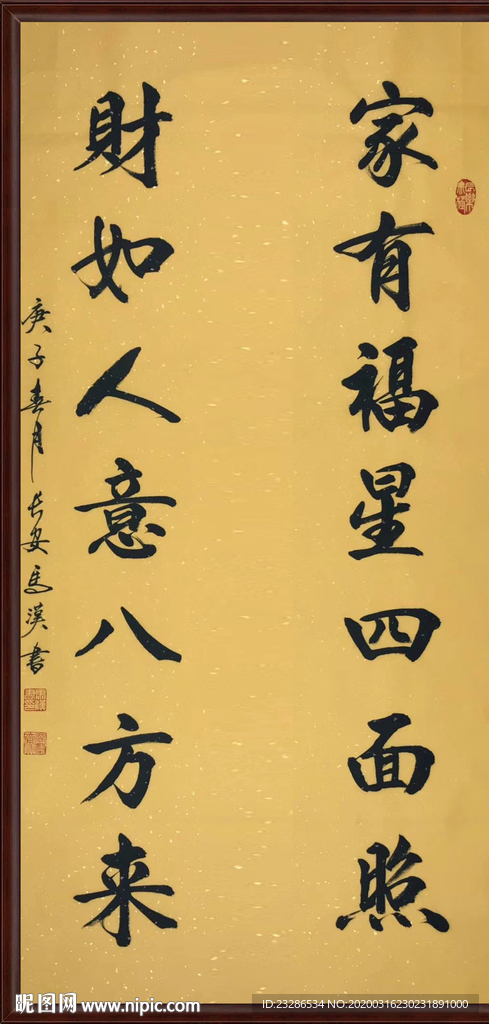 家有福星四面照
財如人意八方来
庚子春月长安馬漢書
昵图网 www.nipic.com
ID:23286534 NO:20200316230231891000